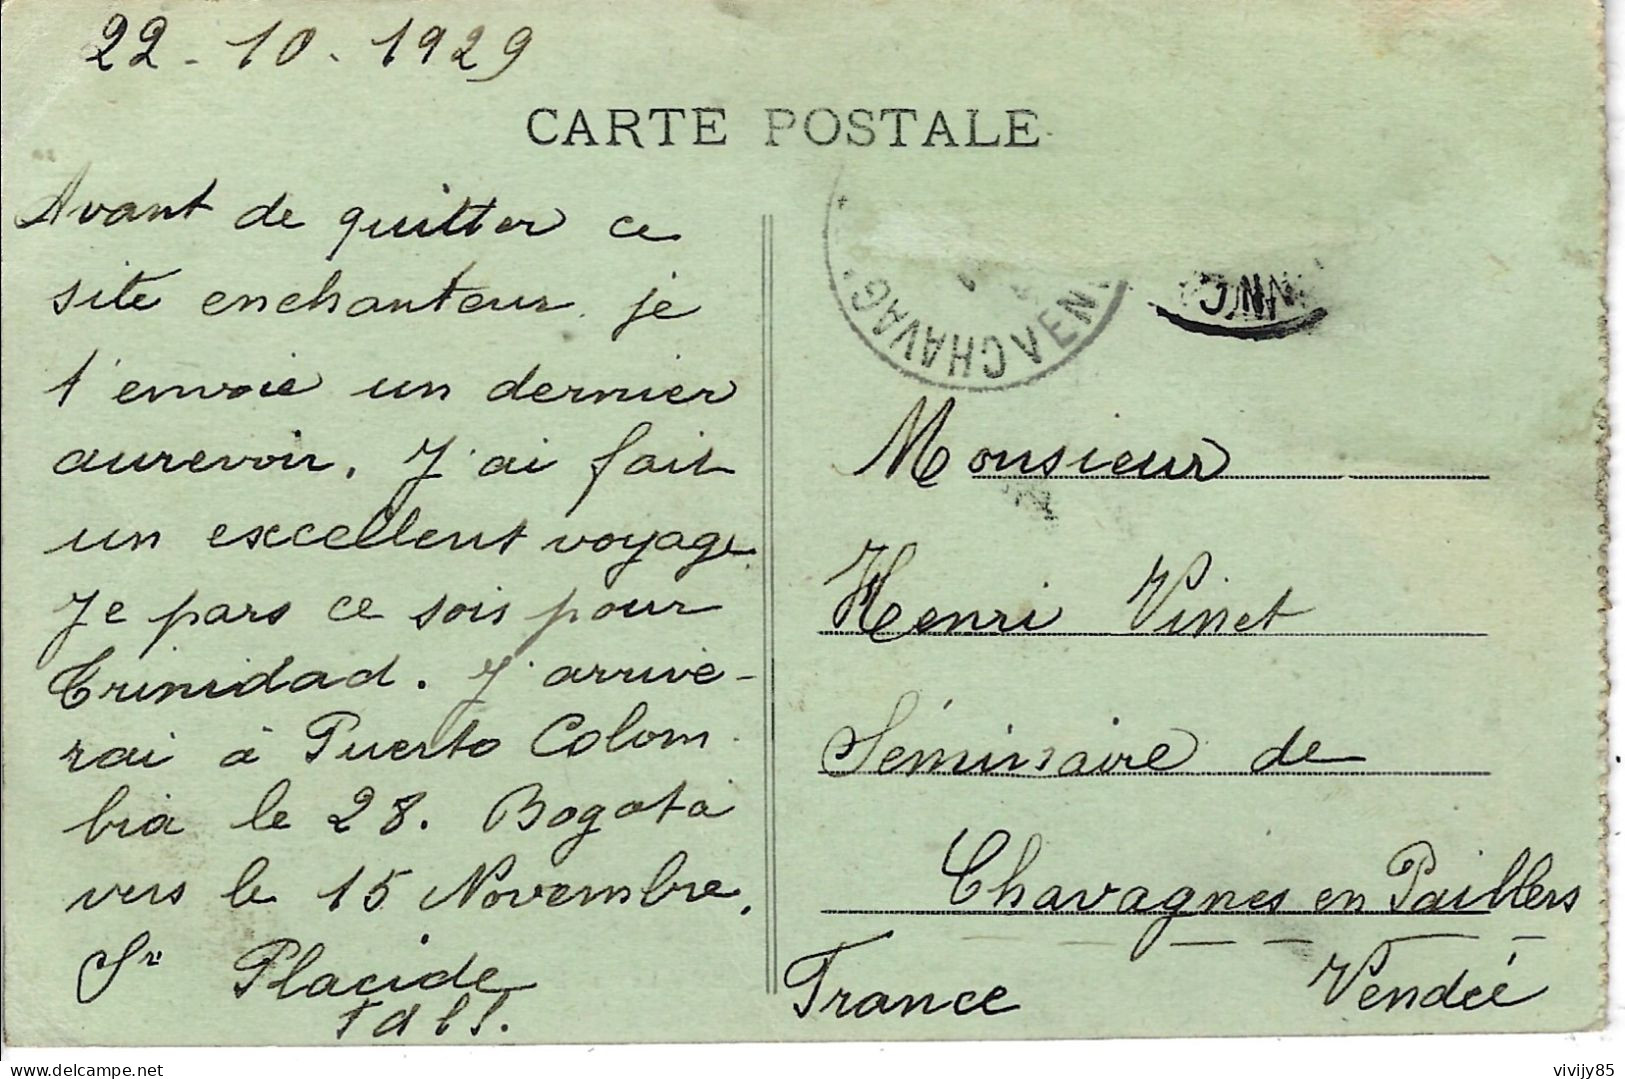 22 - 10 - 1929
CARTE POSTALE
Avant de quitter ce
site enchanteur je
t'envoie un dernier
aurevoir. J'ai fait
un excellent voyage.
Je pars ce soir pour
Trinidad. J'arrive-
rai à Puerto Colom-
bia le 28. Bogota
vers le 15 Novembre.
Sr Placide
CHAVAG
VEN
Monsieur
Henri Vinet
Séminaire de
Chavagnes en Paillers
France Vendée
vivijy85